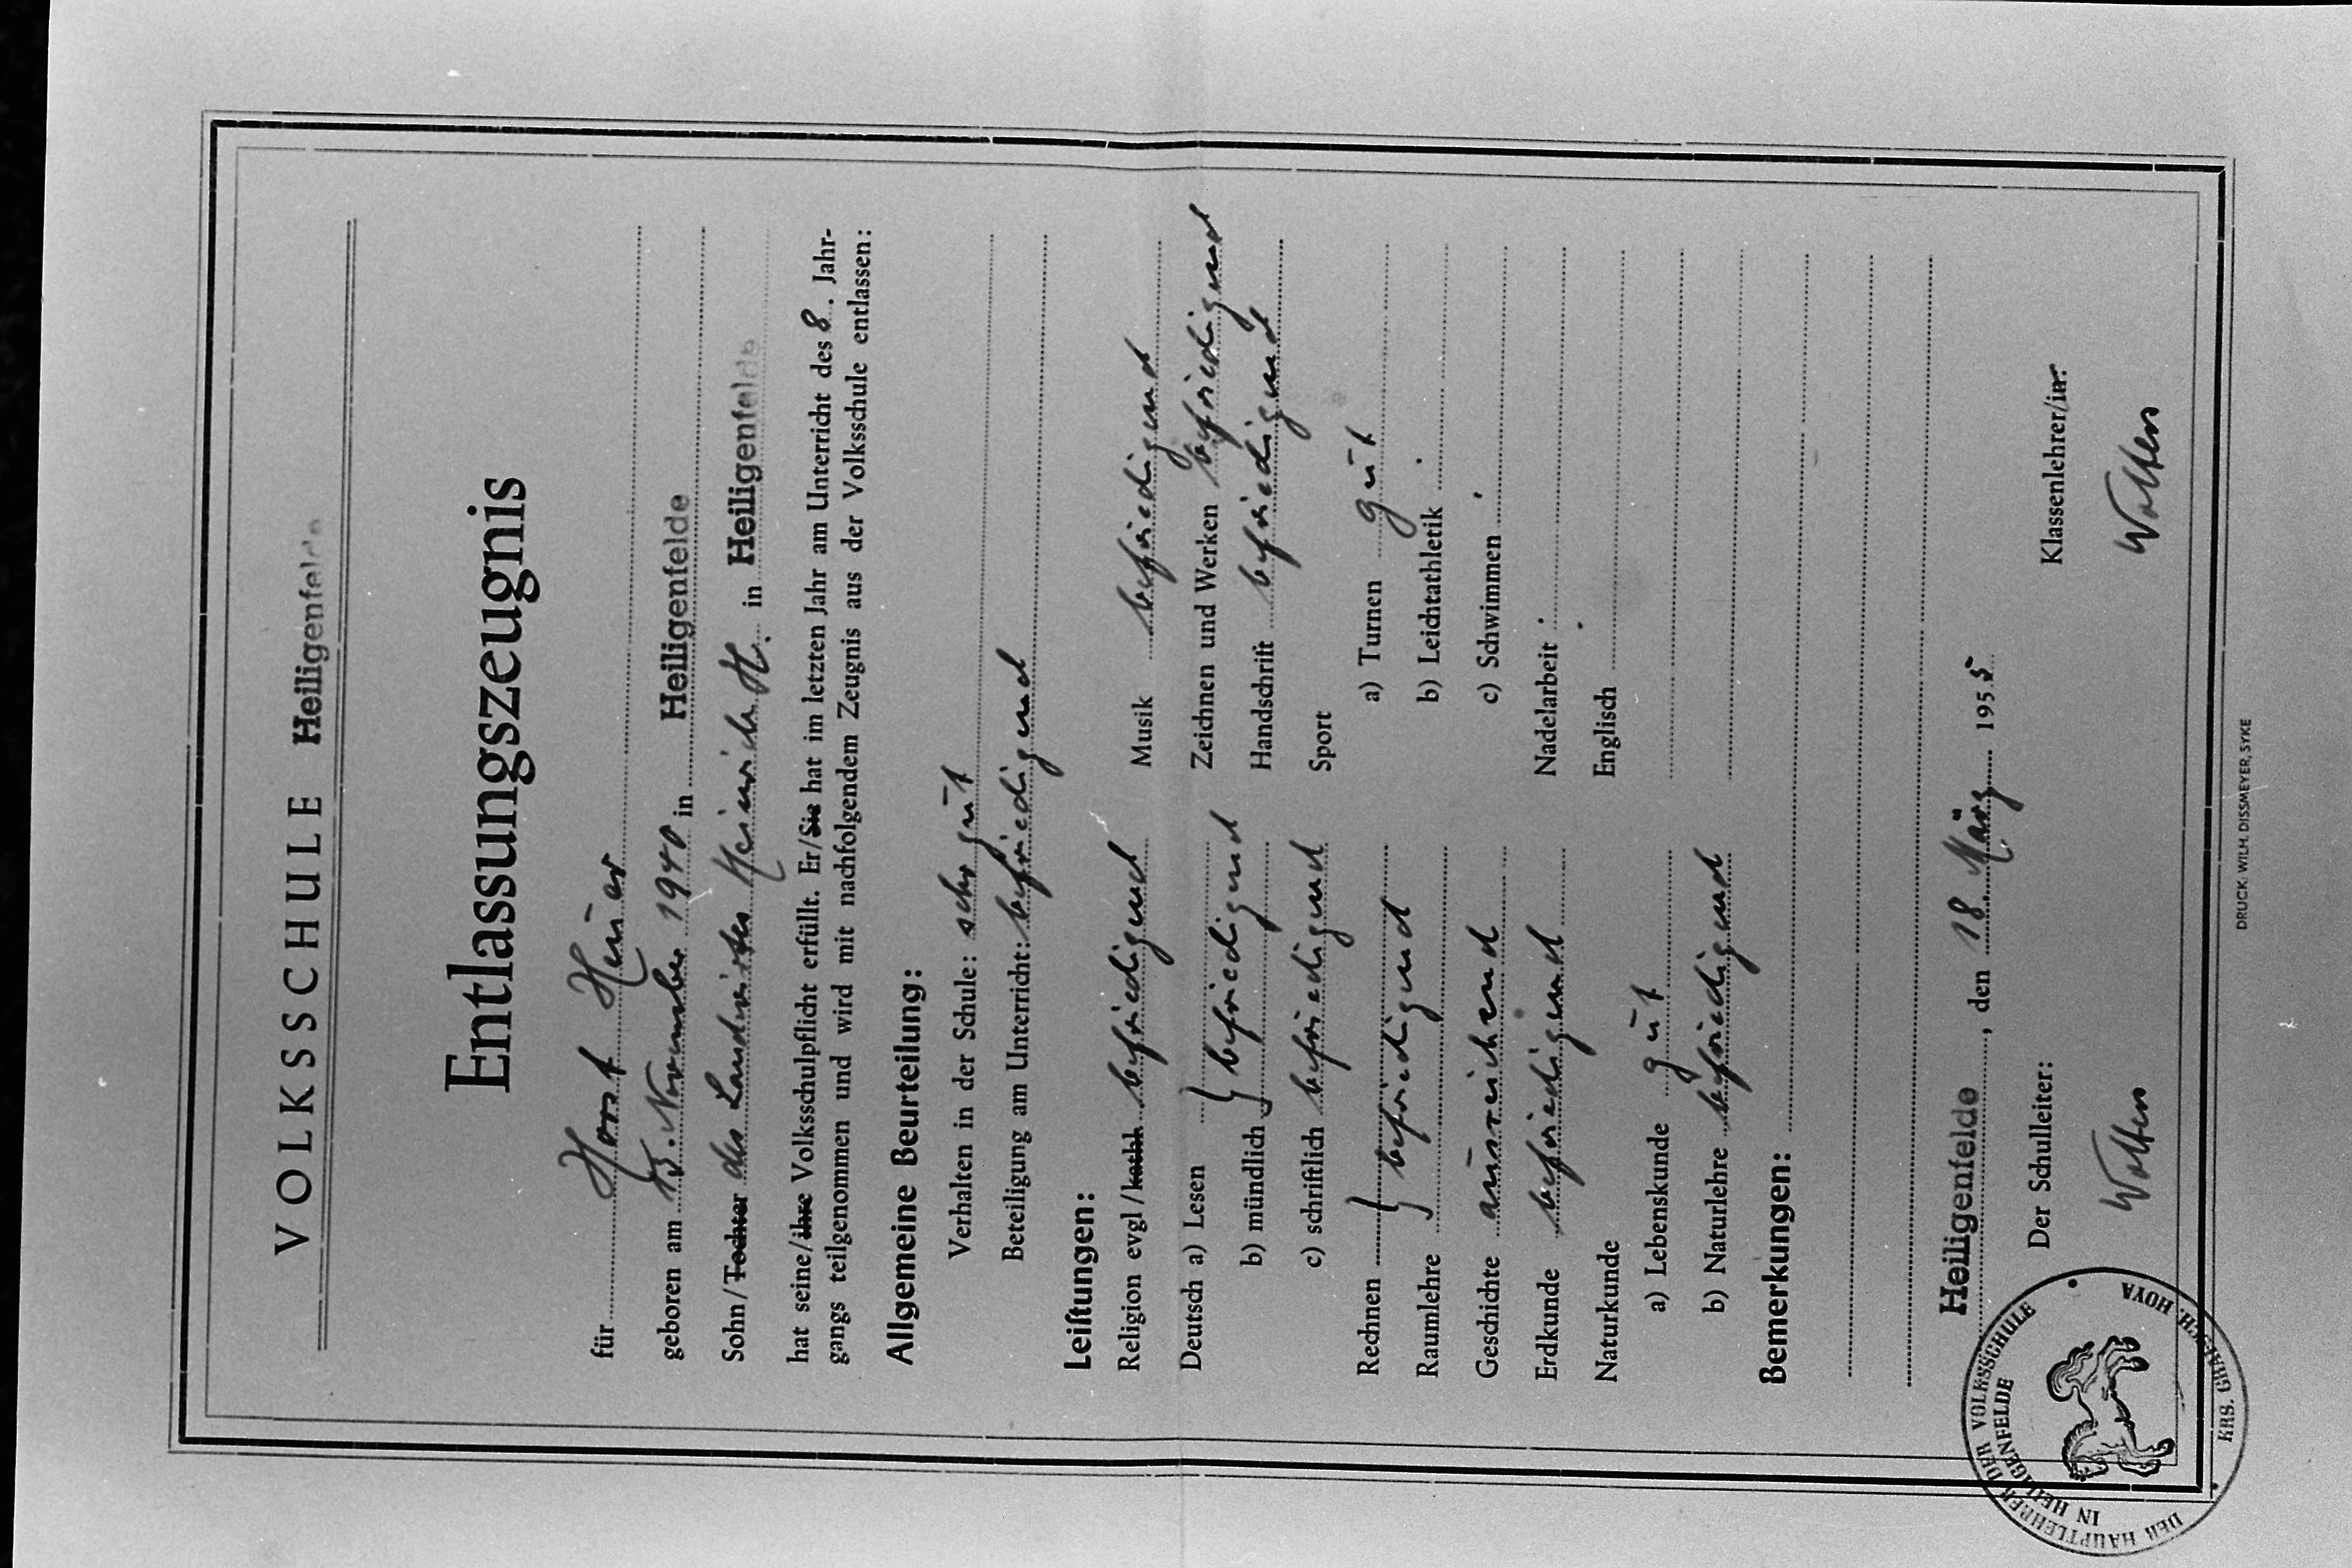 VOLKSSCHULE Heiligenfelde
Entlassungszeugnis
für Horst Heuer
geboren am 13. November 1940 in Heiligenfelde
Sohn/Tochter des Landwirtes Heinrich H. in Heiligenfelde
hat seine/ihre Volksschulpflicht erfüllt. Er/Sie hat im letzten Jahr am Unterricht des 8. Jahr-
gangs teilgenommen und wird mit nachfolgendem Zeugnis aus der Volksschule entlassen:
Allgemeine Beurteilung:
Verhalten in der Schule: sehr gut
Beteiligung am Unterricht: befriedigend
Leiſtungen:
Religion evgl/kathh befriedigend
Deutsch a) Lesen
b) mündlich } befriedigend
c) schriftlich befriedigend
Rechnen
Raumlehre } befriedigend
Geschichte ausreichend
Erdkunde befriedigend
Naturkunde
a) Lebenskunde gut
b) Naturlehre befriedigend
Musik befriedigend
Zeichnen und Werken befriedigend
Handschrift befriedigend
Sport
a) Turnen gut
b) Leichtathletik .
c) Schwimmen .
Nadelarbeit .
Englisch .
Bemerkungen:
Heiligenfelde, den 18. März 1955
Der Schulleiter:
Klassenlehrer/in:
Wolters
Wolters
DER HAUPTLEHRER DER VOLKSSCHULE
IN HEILIGENFELDE
KRS. GRAFSCH. HOYA
DRUCK: WILH. DISSMEYER, SYKE